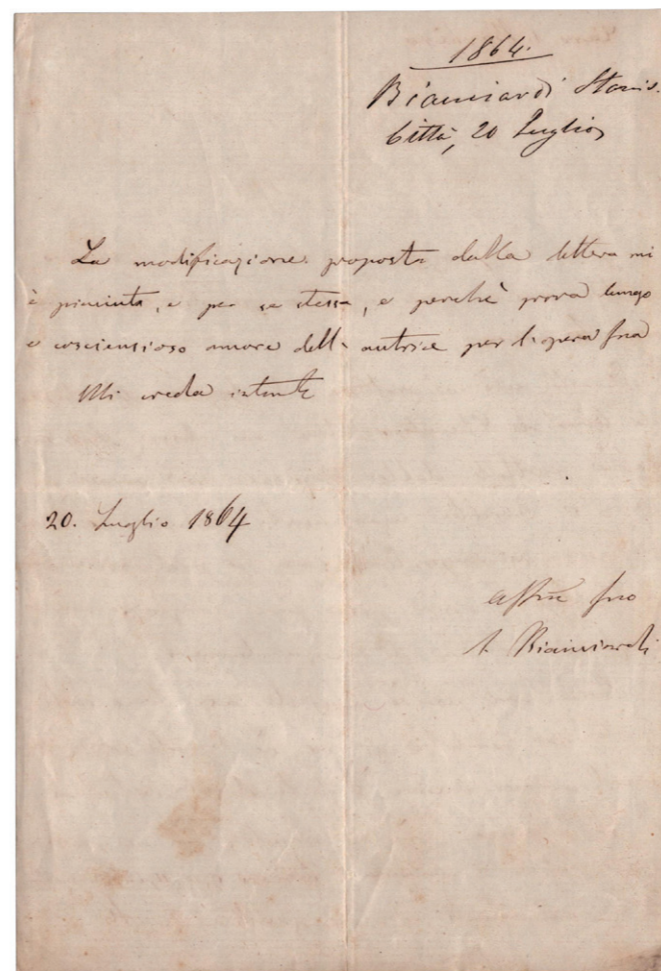 1864.
Bianciardi Stanis.
Città, 20 Luglio
La modificazione proposta dalla lettera mi
è piaciuta, e per se stessa, e perchè prova lungo
e coscienzioso amore dell' autrice per l'opera sua
Mi creda
20. Luglio 1864
affmo suo
S. Bianciardi